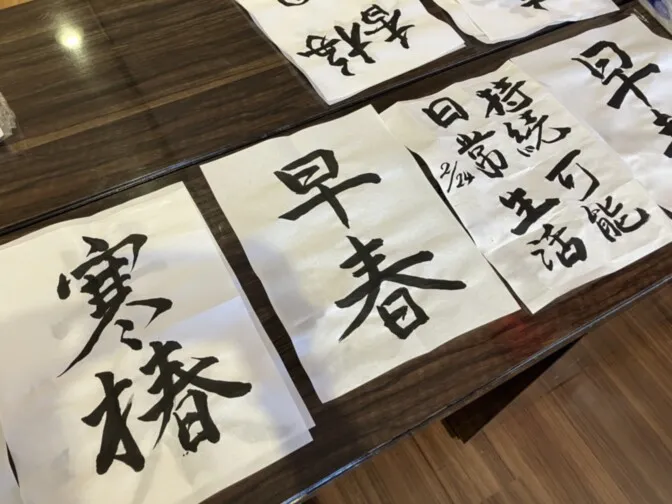 寒椿
早春
持続可能
日常生活
2/24
早